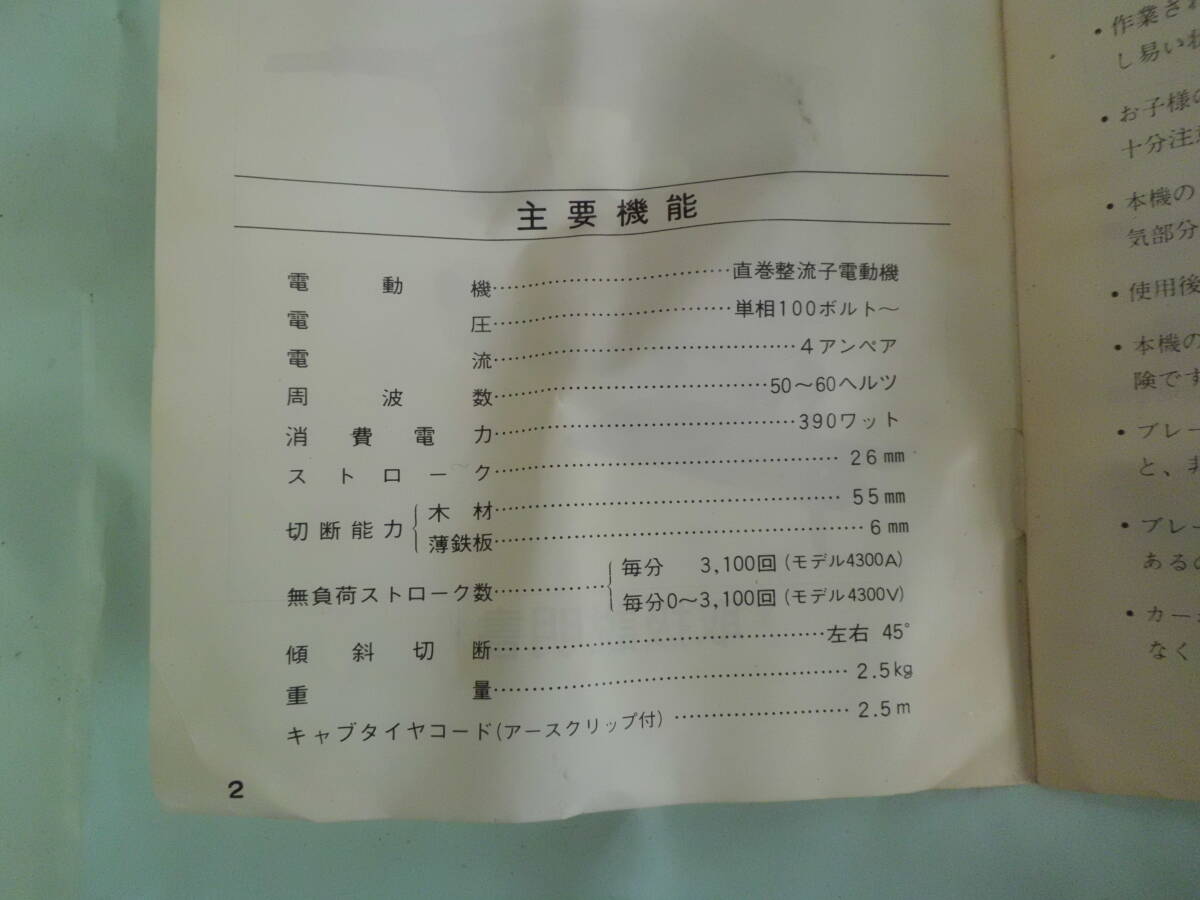 主要機能
電動機 直巻整流子電動機
電圧 単相100ボルト〜
電流 4アンペア
周波数 50〜60ヘルツ
消費電力 390ワット
ストローク 26mm
切断能力 木材 55mm
薄鉄板 6mm
無負荷ストローク数 毎分 3,100回(モデル4300A)
毎分0〜3,100回(モデル4300V)
傾斜切断 左右 45°
重量 2.5kg
キャブタイヤコード(アースクリップ付) 2.5m
2
・作業さ
し易い
・お子様の
十分注
・本機の
気部分
・使用後
・本機の
険です
・ブレー
と、
・ブレー
ある
・カー
なく